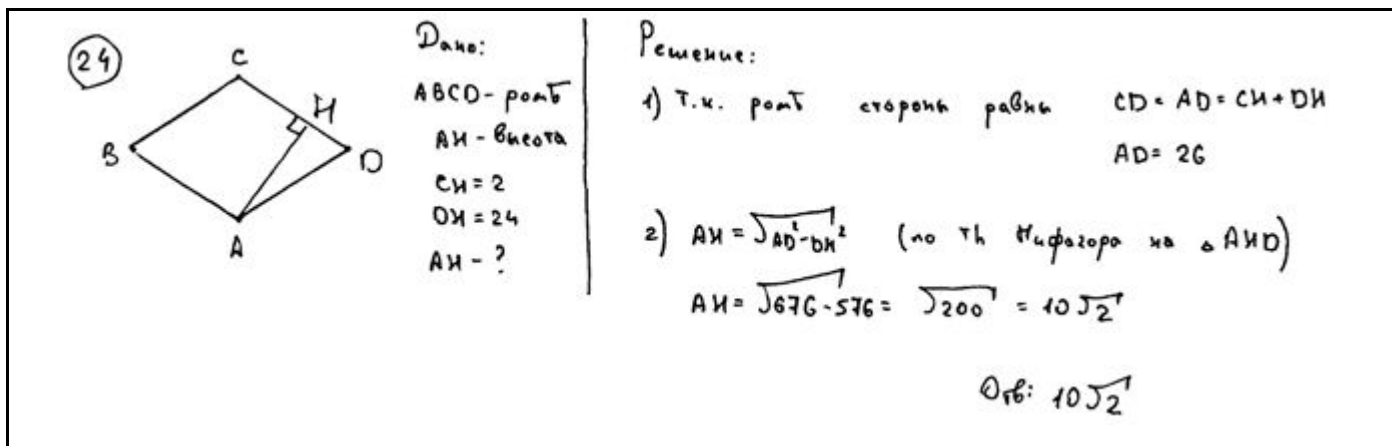 24
C
H
B
D
A
Дано:
ABCD - ромб
AH - высота
CH = 2
DH = 24
AH - ?
Решение:
1) Т.к. ромб стороны равны CD = AD = CH + DH
AD = 26
2) AH = √AD² - DH² (по th Пифагора на △ AHD)
AH = √676 - 576 = √200 = 10√2
Отв: 10√2